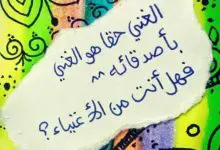 الغني حقا هو الغني
بأصدقائه ^^
فهل أنت من الأغنياء ؟